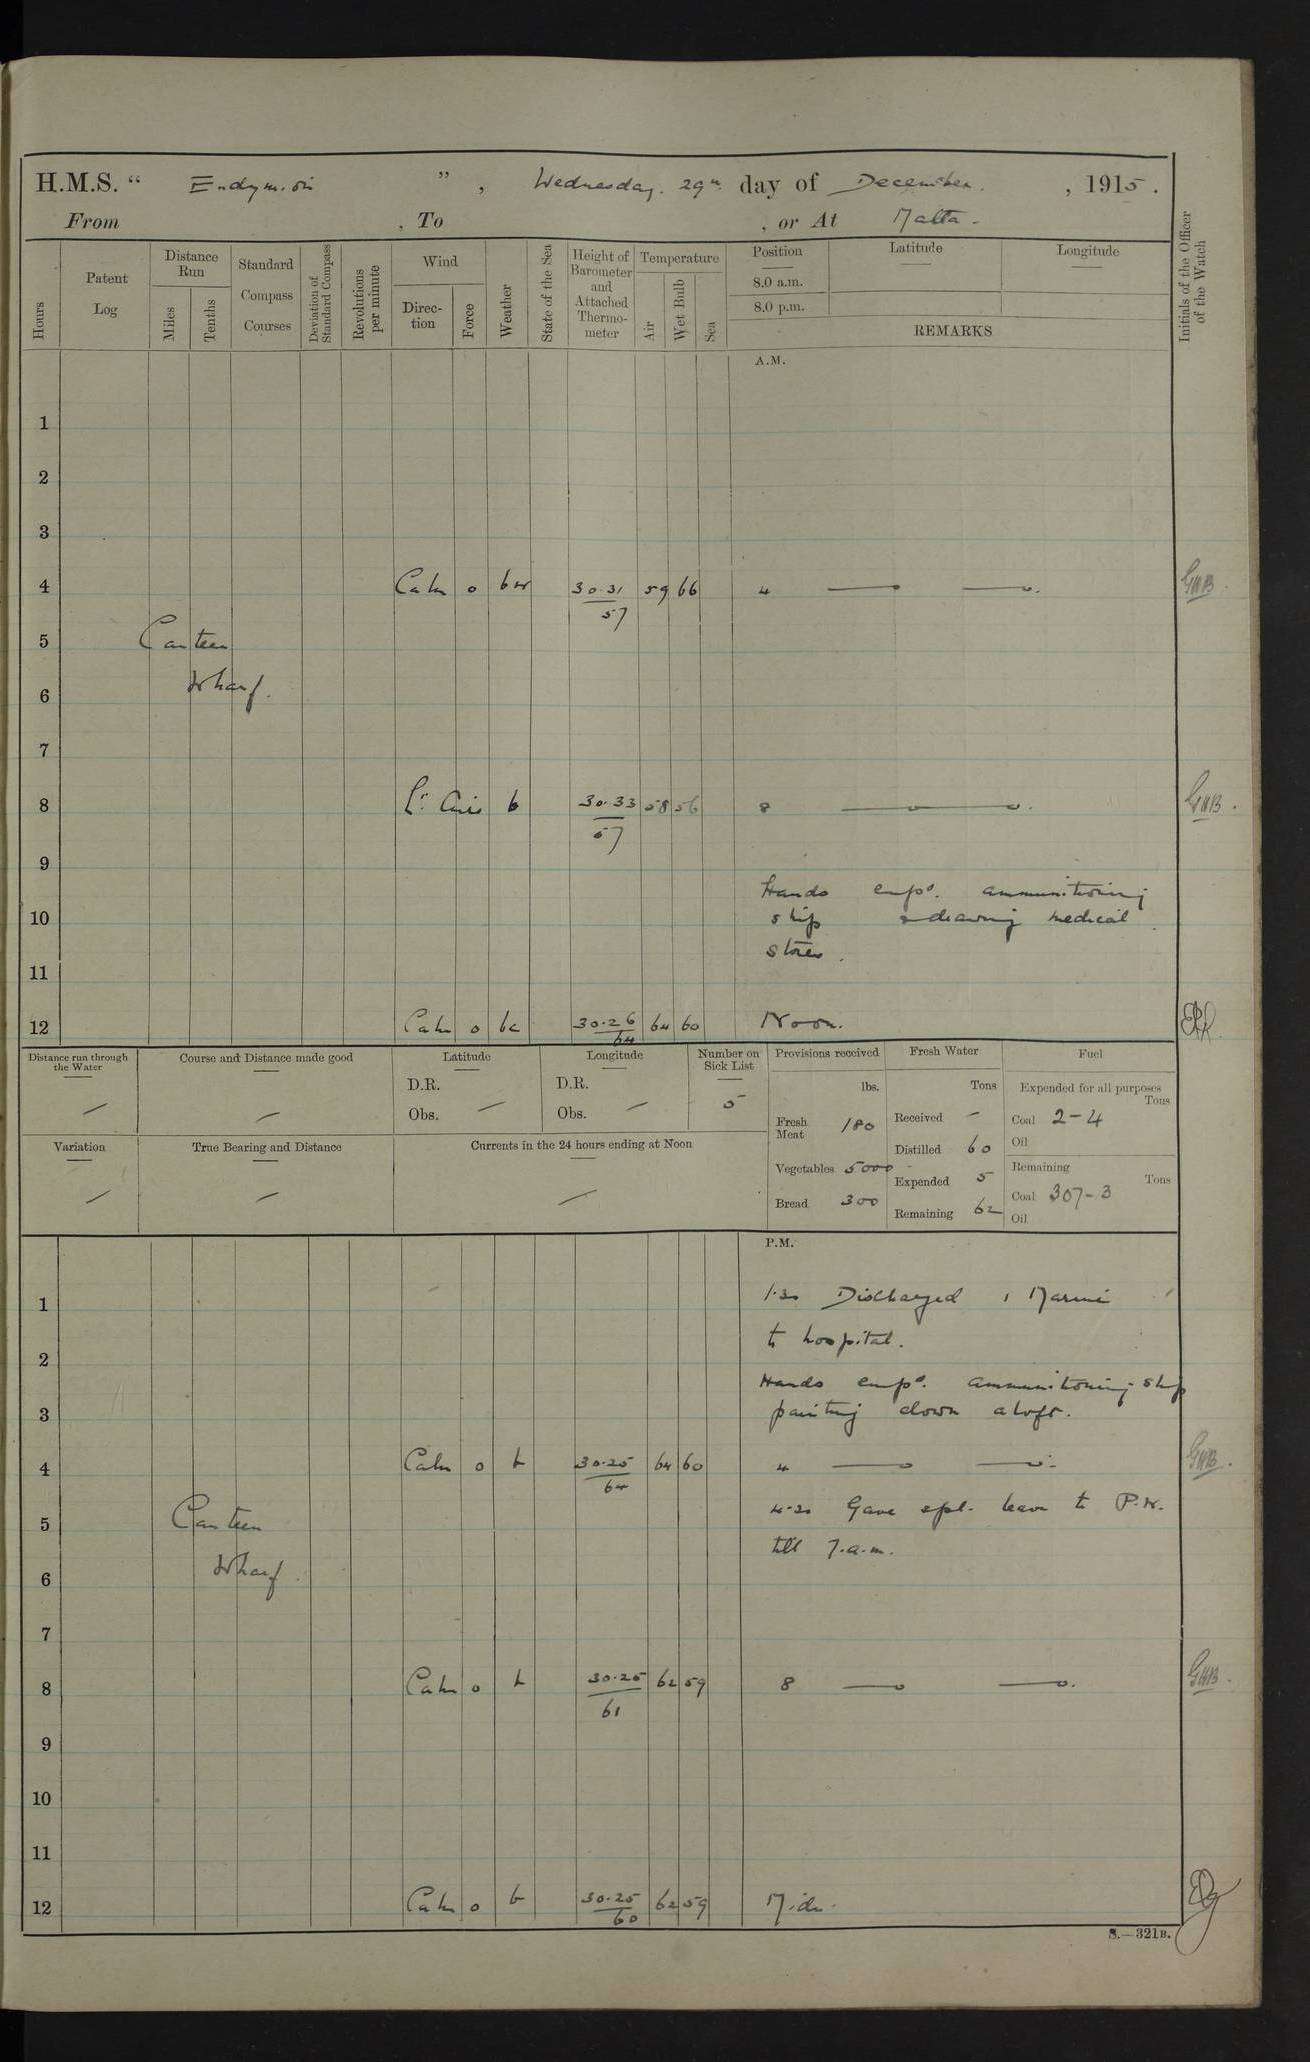 H.M.S. “ Endymion ” , Wednesday. 29th day of December. , 1915 .
From , To , or At Malta .
Hours
Patent Log
Distance Run
Miles
Tenths
Standard Compass Courses
Deviation of Standard Compass
Revolutions per minute
Wind
Direc-tion
Force
Weather
State of the Sea
Height of Barometer and Attached Thermo-meter
Temperature
Air
Wet Bulb
Sea
Position
8.0 a.m.
8.0 p.m.
Latitude
Longitude
REMARKS
Initials of the Officer of the Watch
A.M.
1
2
3
4 Calm 0 30.31 59 66 4 GWB.
57
5 Canteen
6 Wharf.
7
8 Lt. Airs b 30.33 58 56 8 GWB.
57
9
Hands empd. ammunitioning
10 ship & drawing medical
stores.
11
12 Calm 0 bc 30.26 64 60 Noon.
64
Distance run through the Water
Course and Distance made good
Latitude
D.R.
Obs.
Longitude
D.R.
Obs.
Number on Sick List
5
Provisions received
lbs.
Fresh Meat 180
Vegetables 5000
Bread 300
Fresh Water
Tons
Received -
Distilled 60
Expended 5
Remaining 62
Fuel
Expended for all purposes
Tons
Coal 2-4
Oil
Remaining
Tons
Coal 307-3
Oil
Variation
True Bearing and Distance
Currents in the 24 hours ending at Noon
P.M.
1 1.30 Discharged 1 Marine
to hospital.
2
Hands empd. ammunitioning ship
3 painting down aloft.
4 Calm 0 b 30.25 64 60 4 GWB.
64
4-30 Gave spl. leave to P.W.
5 Canteen
till 7.a.m.
6 Wharf
7
8 Calm 0 b 30.25 62 59 8 GWB.
61
9
10
11
12 Calm 0 b 30.25 62 59 Midn.
60
S.—321B.